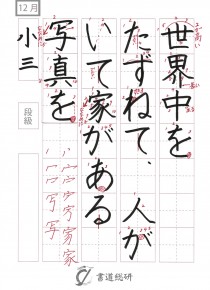 12月
世界中を
たずねて、人が
いて家がある
写真を
小三
段級
書道総研